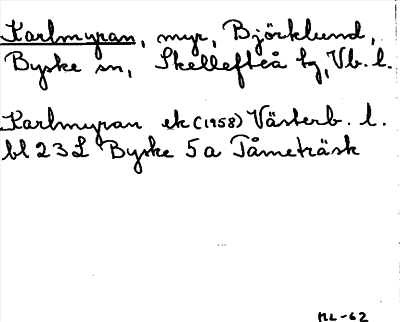 Karlmyran, myr, Björklund,
Byske sn, Skellefteå tg, Vb. l.
Karlmyran ek (1958) Västerb. l.
bl 23 L Byske 5 a Tåmeträsk
ML-62